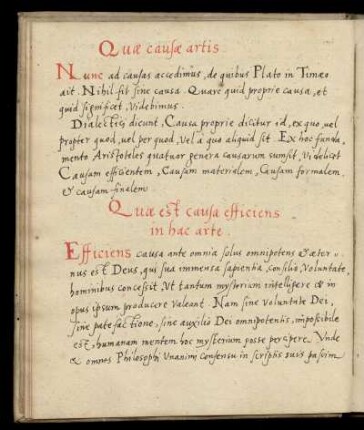 Quæ causæ artis.
Nunc ad causas accedimus, de quibus Plato in Timæo
ait. Nihil fit sine causa. Quare quid proprie causa, et
quid significet, videbimus.
Dialectici dicunt, Causa proprie dicitur id, ex quo, uel
propter quod, uel per quod, Vel a quo aliquid fit. Ex hoc funda,
mento Aristoteles quatuor genera causarum sumsit, Videlicet
Causam efficientem, Causam materialem, Causam formalem,
& causam finalem.
Quæ est causa efficiens
in hac arte.
Efficiens causa ante omnia solus omnipotens & æter
nus est Deus, qui sua immensa sapientia, consilio, Voluntate,
hominibus concessit, Vt tantum mysterium intelligere & in
opus ipsum producere valeant. Nam sine voluntate Dei,
sine patefactione, sine auxilio Dei omnipotentis, impossibile
est, humanam mentem hoc mysterium posse percipere. Vnde
& omnes Philosophi Vnanimi consensu in scriptis suis passim